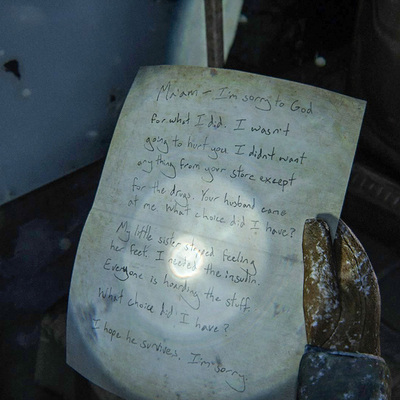 Ma'am - I'm sorry to God
for what I did. I wasn't
going to hurt you I didn't want
anything from your store except
for the drugs. Your husband came
at me. What choice did I have?
My little sister stopped feeling
her feet. I needed the insulin.
Everyone is hoarding the stuff.
What choice did I have?
I hope he survives. I'm sorry.